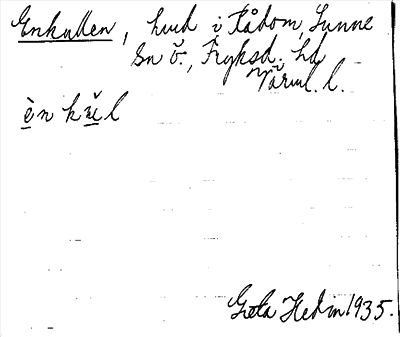 Enkullen, hmd i Rådom, Sunne
sn ö., Fryksd. hd
Värml. l.
è n k ŭ l
Göta Hedin 1935.